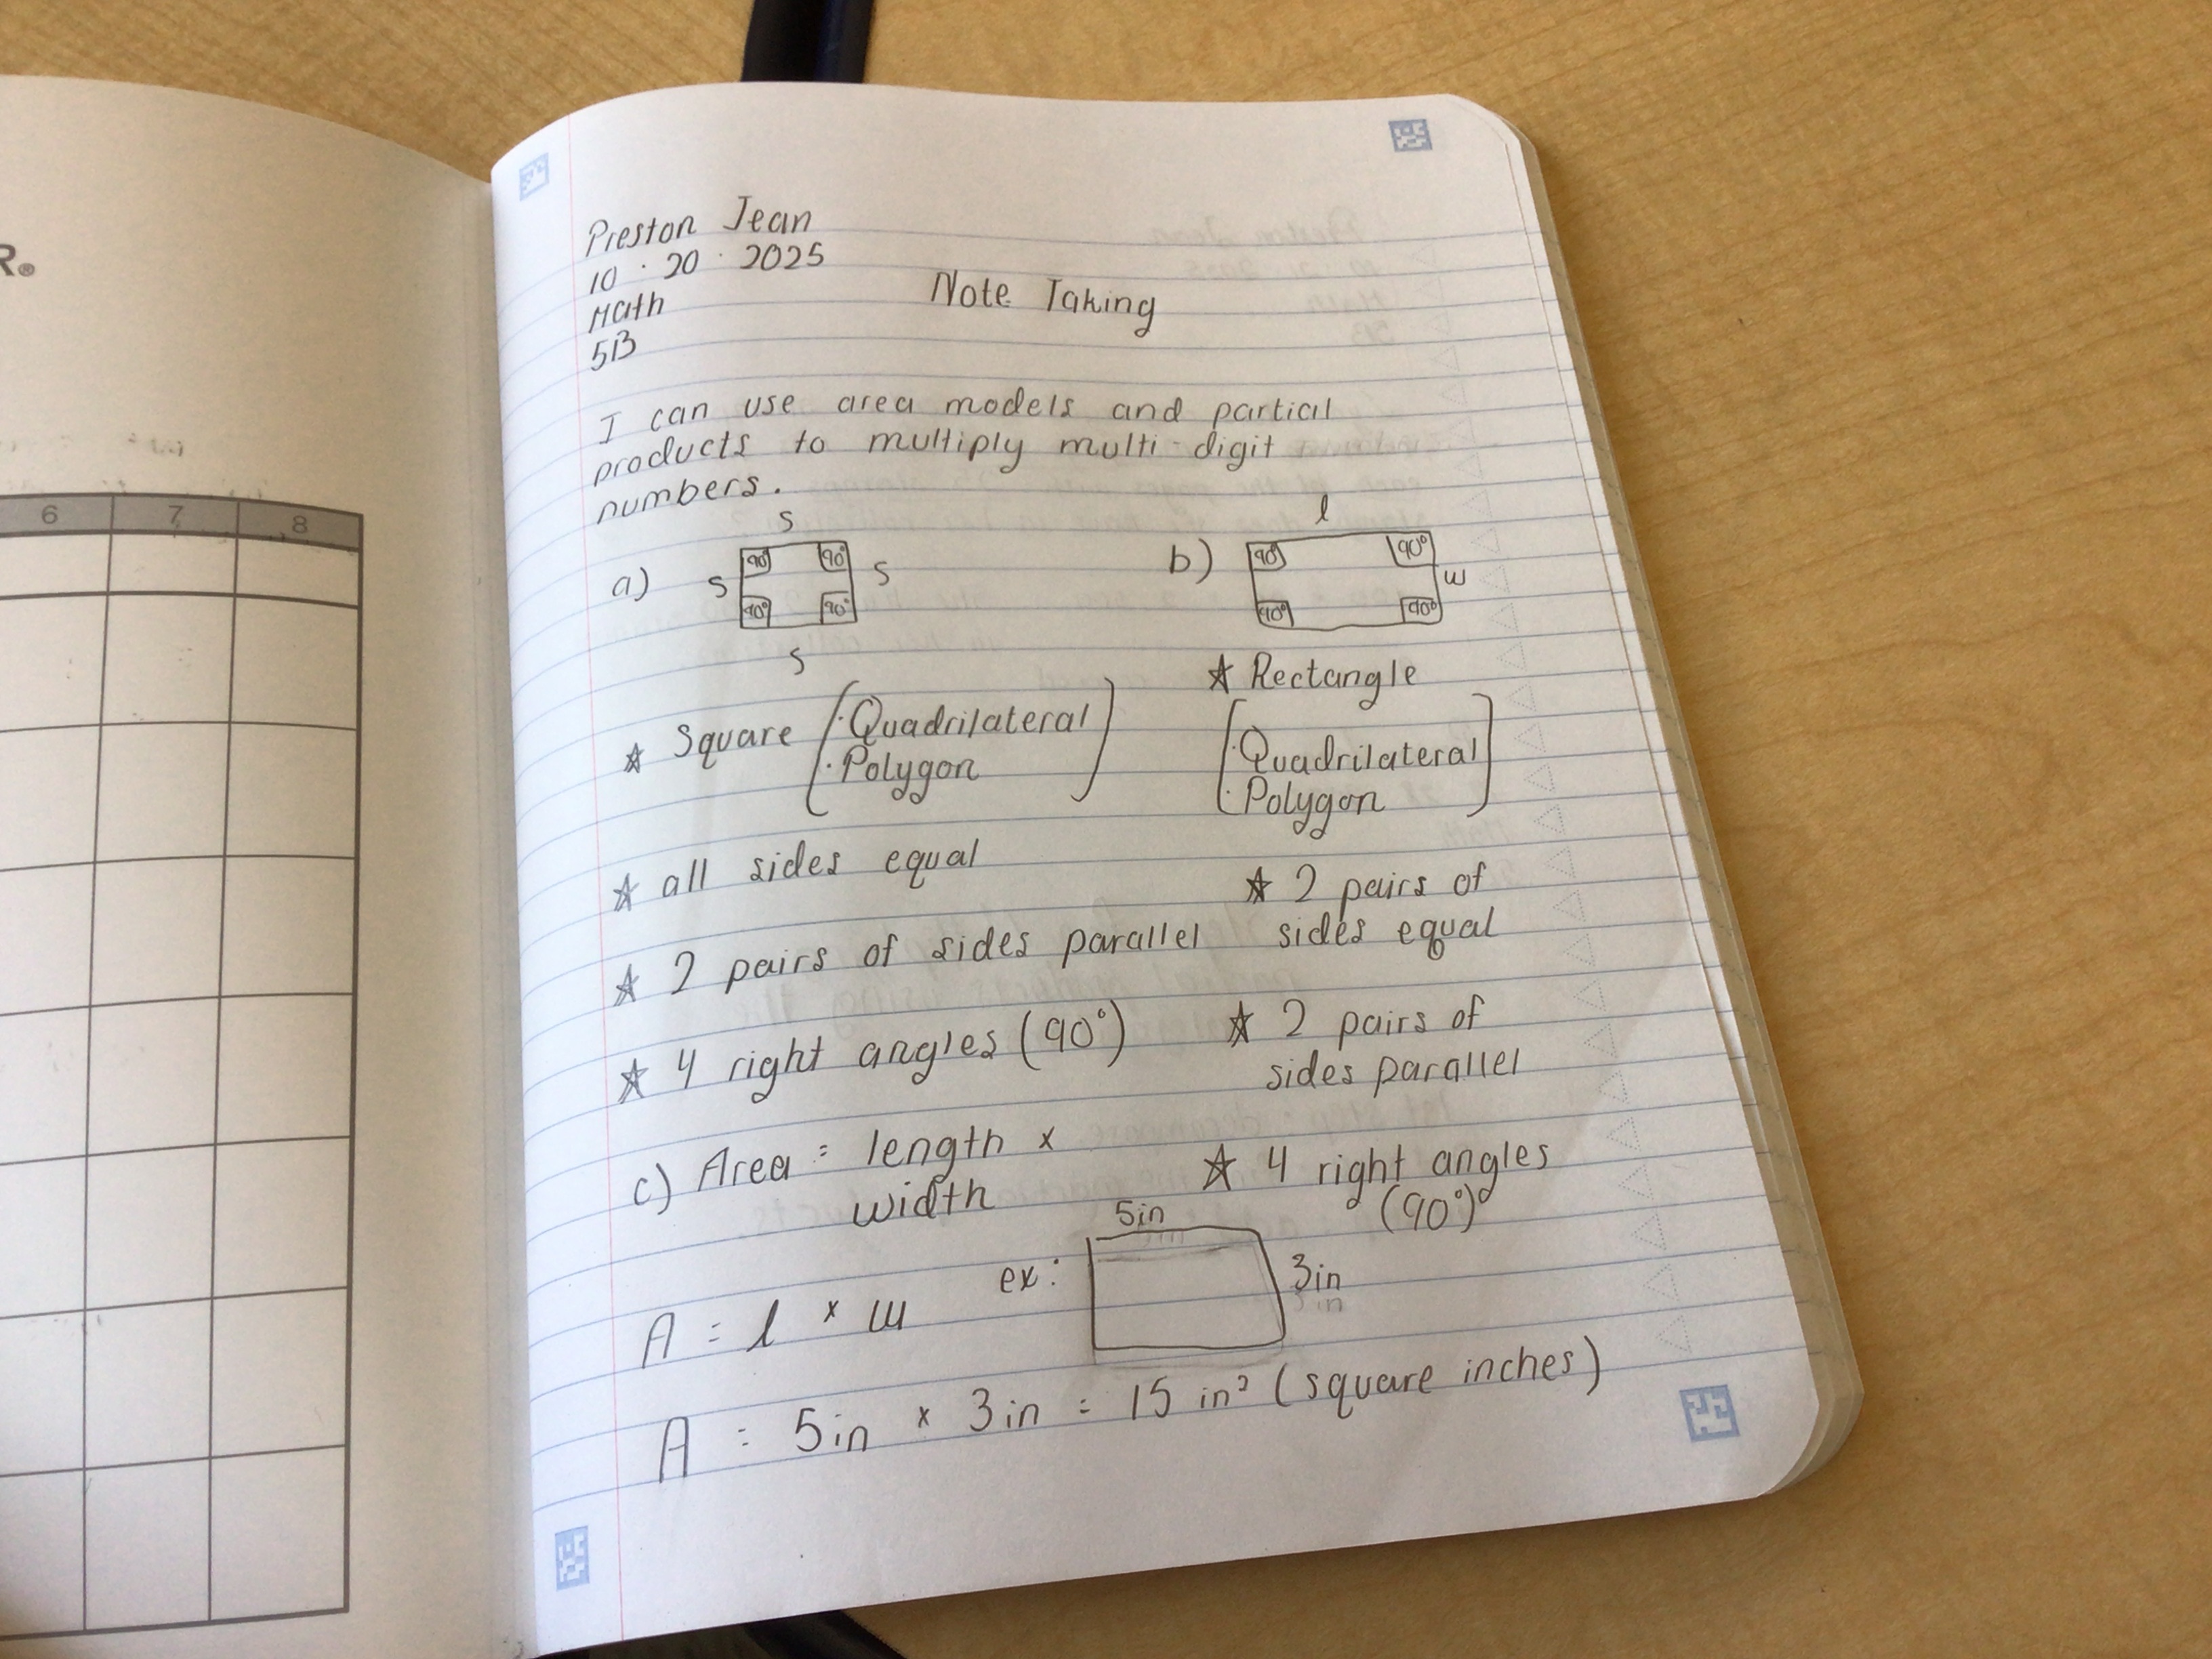 R®
6 7 8
Preston Jean
10 · 20 · 2025
Math
5B
Note Taking
I can use area models and partial
products to multiply multi-digit
numbers.
a)
s
s
s
s
90°
90°
90°
90°
b)
l
w
90°
90°
90°
90°
☆ Square
[· Quadrilateral
· Polygon]
☆ all sides equal
☆ 2 pairs of sides parallel
☆ 4 right angles (90°)
☆ Rectangle
[· Quadrilateral
· Polygon]
☆ 2 pairs of
sides equal
☆ 2 pairs of
sides parallel
☆ 4 right angles
(90°)
c) Area = length x
width
A = l x w
ex:
5in
3in
A = 5in x 3in = 15 in² (square inches)